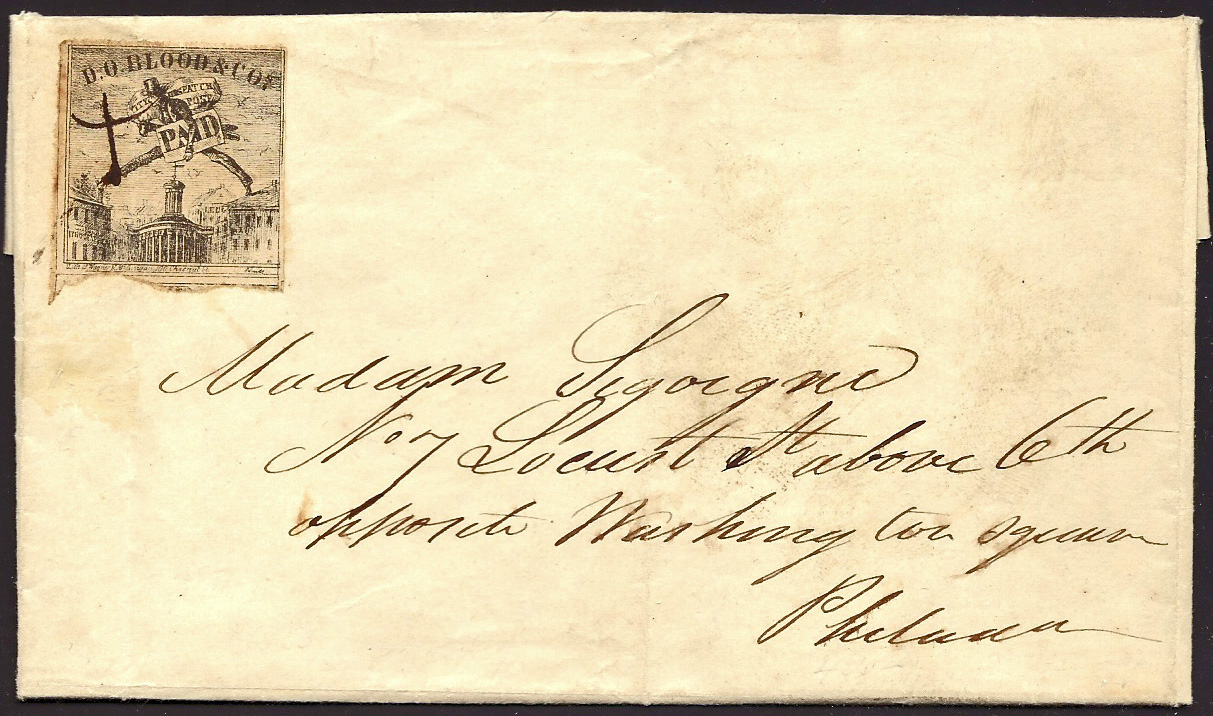 D.O. BLOOD & CO'S
CITY DESPATCH
POST
PAID
Madam Sigoigne
No 7 Locust St above 6th
opposite Washington square
Philada